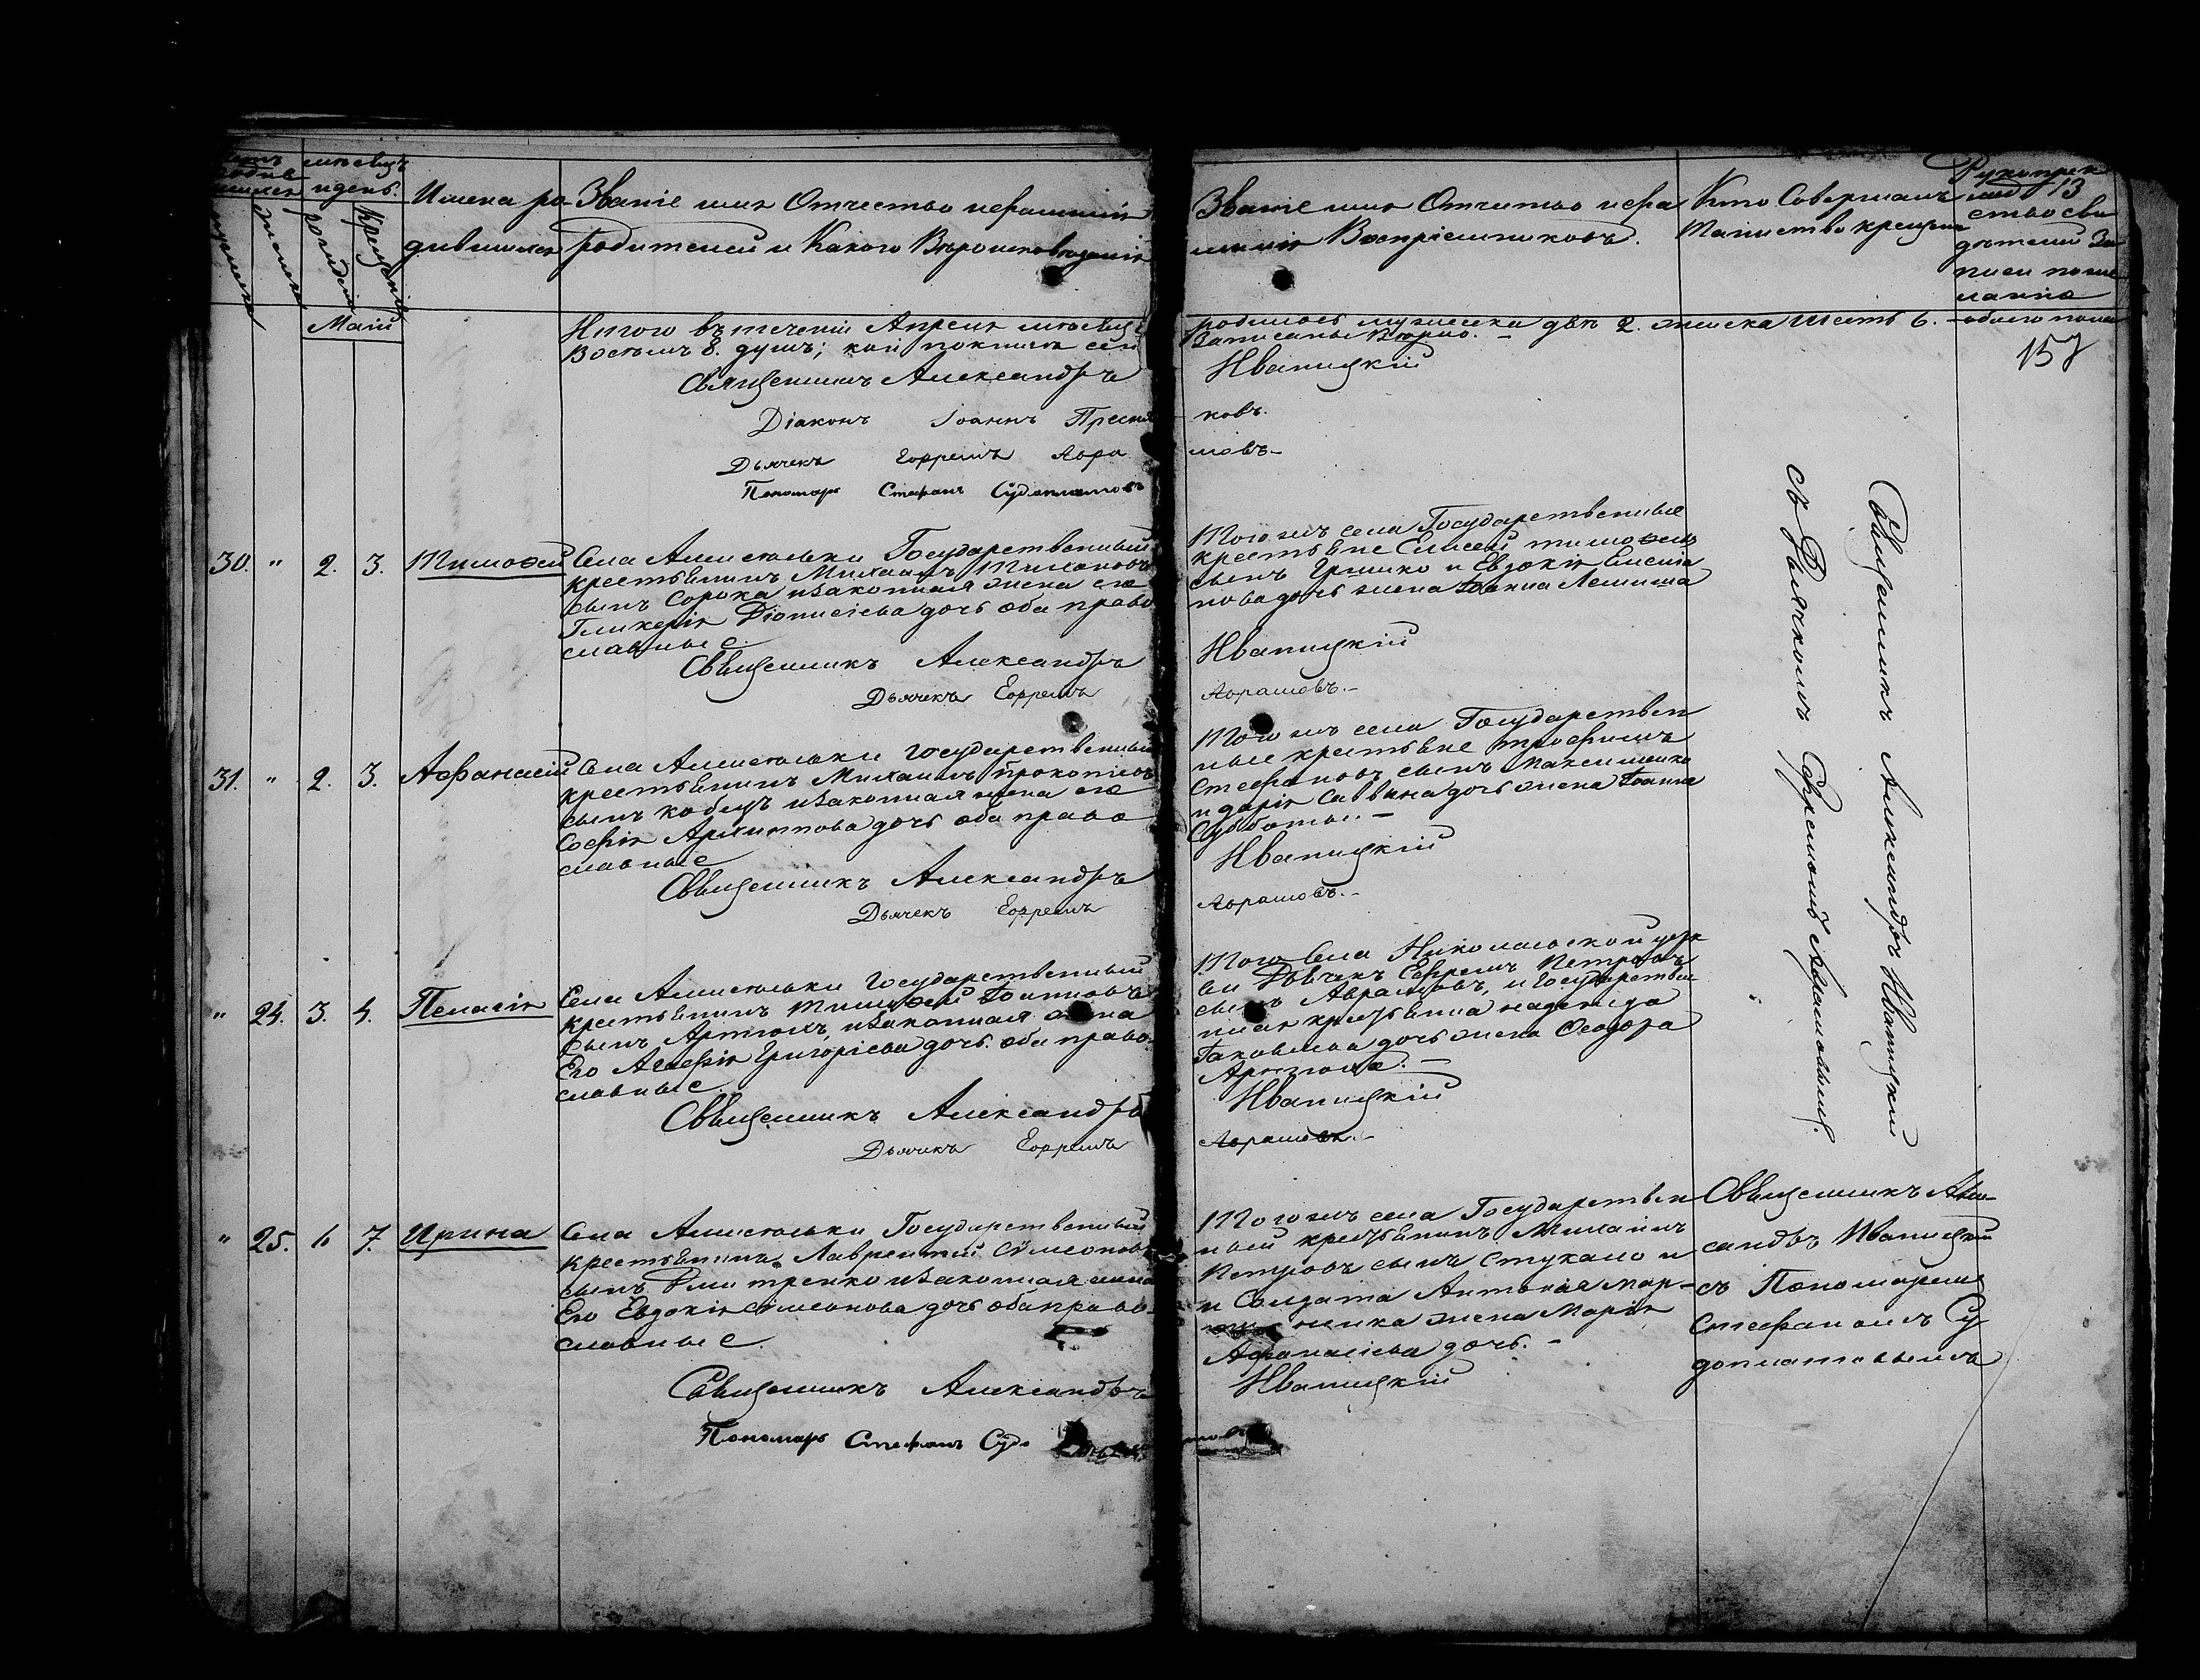 мѣсяцъ
и день.
Имена ро
дившихся
Званіе имя Отчество и фамилія
Родителей и Какого Вѣроисповѣданія
Званіе имя Отчество и фа
милія Воспріемниковъ.
Кто Совершалъ
Таинство крещенія
Рукоприк
лад 13
ство сви
дѣтелей За
писи по же
ланію
Маій
Итого въ теченіи Апреля мѣсяца
родилось мужеска два 2. женска шесть 6. обоего пола
Восемь 8. душъ;
Записаны Вѣрно. –
157
Священникъ Александръ Иваницкій
Діаконъ Іоаннъ
ковъ.
Дьячекъ Ефремъ Авра
мовъ–
Пономарь Стефанъ Судоплатовъ
30. " 2. 3. Тимофей
Села Государственный
крестьянинъ Михаилъ Тихоновъ
сынъ Сорока и законная жена его
Гликерія Діонисіева дочь оба право
славные
Того жъ села Государственные
крестьяне Елисей
сынъ Гришко и Евдокія
дочь жена Іоанна
Священникъ Александръ Иваницкій
Дьячекъ Ефремъ Аврамовъ.–
31. " 2. 3. Афанасій
Села Государственный
крестьянинъ Михаилъ Прокопіевъ
сынъ Кобецъ и законная жена его
Софія дочь оба право
славные
Того жъ села Государствен
ные крестьяне Трофимъ
Стефановъ сынъ Максименко
и Дарія Саввина дочь жена Іоанна
Субботы. –
Священникъ Александръ Иваницкій
Дьячекъ Ефремъ Аврамовъ.–
" 24. 3. 4. Пелагія
Села Государственный
крестьянинъ Тимофей Іоанновъ
сынъ Артюхъ, и законная жена
Его Агафія Григоріева дочь. оба право
славные
Того Села Николаевской церк
ви Дьячекъ Ефремъ Петровъ
сынъ Аврамовъ, и Государствен
ная крестьянка Надежда
Іаковлева дочь жена Феодора
Артюха. –
Священникъ Александръ Иваницкій
Дьячекъ Ефремъ Аврамовъ.–
Священникъ Александръ Иваницкій
съ Дьячкомъ Ефремомъ Аврамовымъ.
" 25. 6 7. Ирина
Села Государственный
крестьянинъ Лаврентій Симеоновъ
сынъ Дмитренко и законная жена
Его Евдокія Симеонова дочь оба право
славные
Того жъ села Государствен
ный крестьянинъ Михаилъ
Петровъ сынъ Стукало и
и Солдата Антонія Мар
жена Марія
Афанасіева дочь. –
Священникъ Алек
сандръ Иваницкій
съ Пономаремъ
Стефаномъ Су
доплатовымъ
Священникъ Александръ Иваницкій
Пономарь Стефанъ Судо